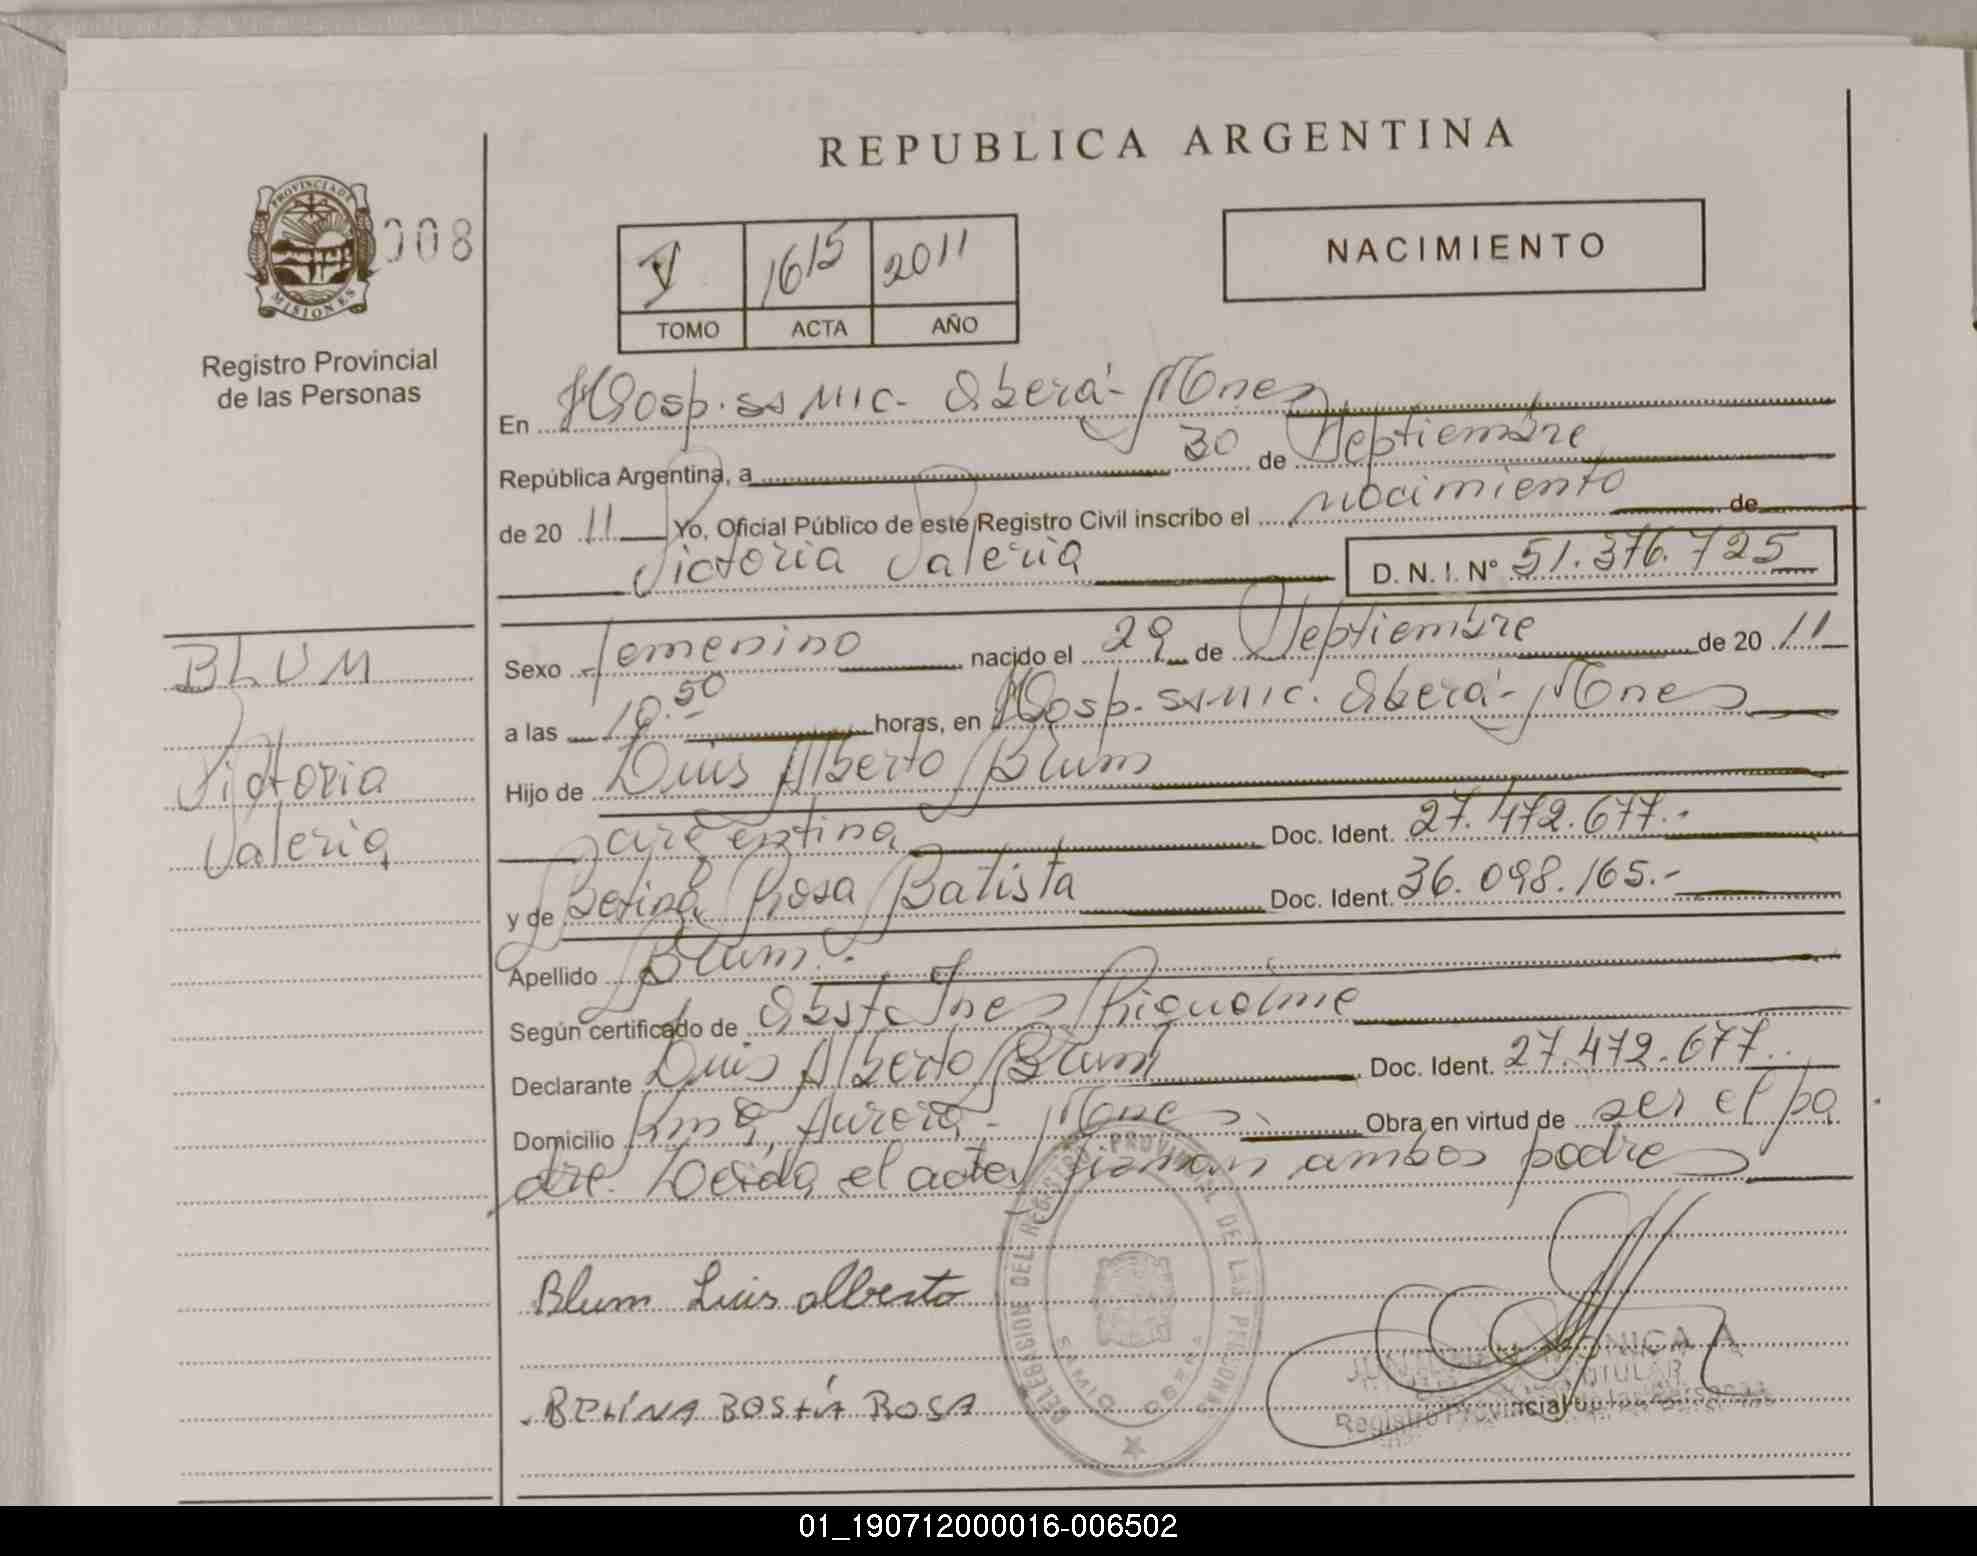 REPUBLICA ARGENTINA
PROVINCIA DE
MISIONES
008
Registro Provincial
de las Personas
V 1615 2011
TOMO ACTA AÑO
NACIMIENTO
En Hosp. ss Mic. Oberá - Mnes
República Argentina, a 30 de Septiembre
de 20 11 Yo, Oficial Público de este Registro Civil inscribo el nacimiento de
Victoria Valeria D. N. I. N° 51.376.725
BLUM
Victoria
Valeria
Sexo femenino nacido el 29 de Septiembre de 20 11
a las 10.50 horas, en Hosp. ss Mic. Oberá - Mnes
Hijo de Luis Alberto Blum
argentina Doc. Ident. 27.472.677.-
y de Betina Rosa Batista Doc. Ident. 36.098.165.-
Apellido Blum.
Según certificado de Obst. Ines Riquelme
Declarante Luis Alberto Blum Doc. Ident. 27.472.677..
Domicilio Aurora - Mnes Obra en virtud de ser el pa
dre. Leida el acta firman ambos padres
Blum Luis alberto
ROSA
DELEGACION DEL REGISTRO PROVINCIAL DE LAS PERSONAS
OBERA
MONICA A
TITULAR
Registro Provincial de las Personas
01_190712000016-006502